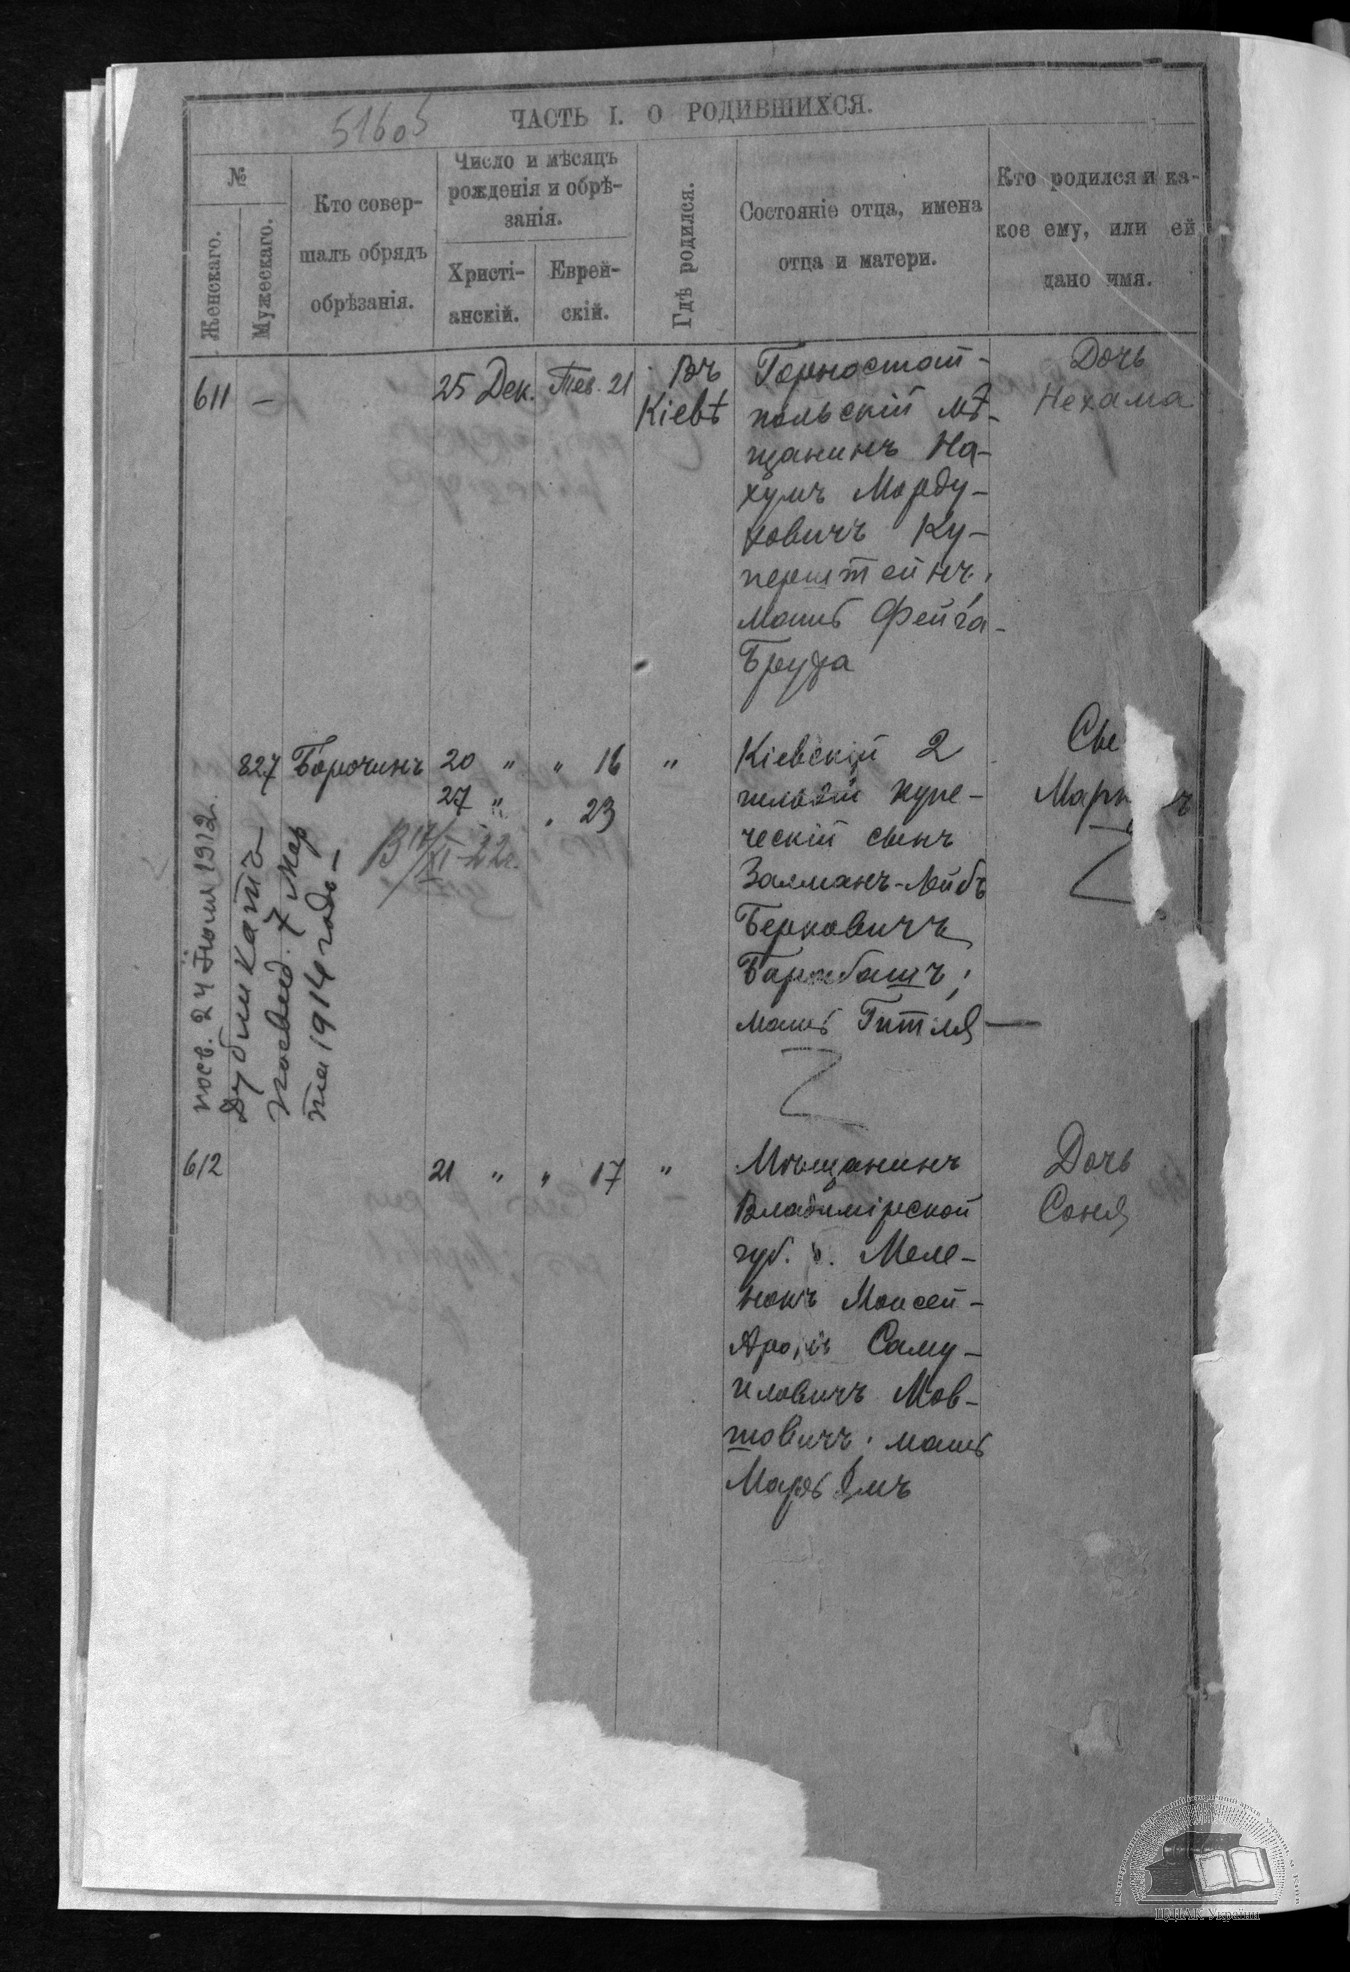 51605
ЧАСТЬ I. О РОДИВШИХСЯ.
№
Женскаго.
Мужескаго.
Кто совер-
шалъ обрядъ
обрѣзанія.
Число и мѣсяцъ
рожденія и обрѣ-
занія.
Христі-
анскій.
Еврей-
скій.
Гдѣ родился.
Состояніе отца, имена
отца и матери.
Кто родился и ка-
кое ему, или ей
дано имя.
611 — 25 Дек. Тев. 21 Въ
Кіевѣ
Горностай-
польскій мѣ-
щанинъ На-
хумъ Морду-
ховичъ Ку-
перштейнъ,
мать Фейга-
Бруха
Дочь
Нехама
827 Борочинъ 20 " " 16 "
27 " " 23
Кіевскій 2
гильдіи купе-
ческій сынъ
Залманъ-Лейбъ
Берковичъ
мать Гитля —
посв. 24 Іюля 1912 г.
Дубликатъ
посвид. 7 Мар
та 1914 года —
612 21 " " 17 "
Мѣщанинъ
Владимірской
губ. г. Меле-
нокъ Моисей-
Аронъ Саму-
иловичъ Мов-
шовичъ, мать
Марьямъ
Дочь
Соня
ЦДІАК України